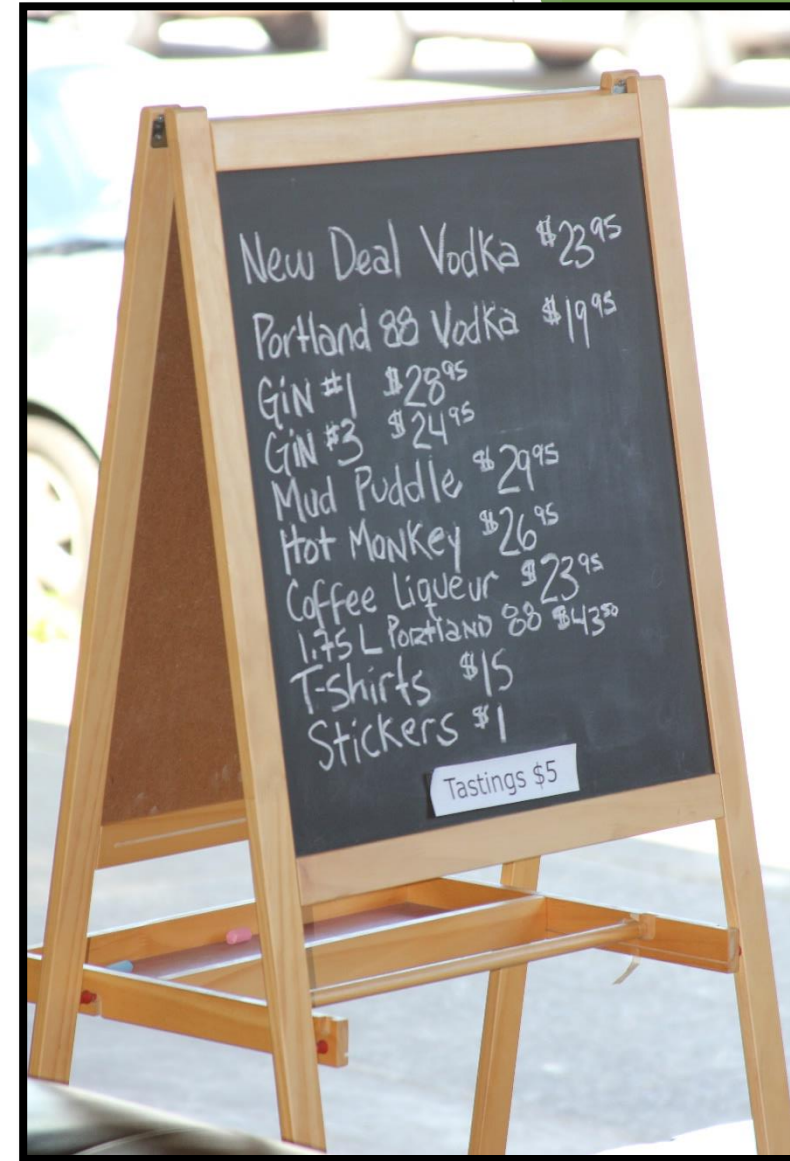 New Deal Vodka $23.95
Portland 88 Vodka $19.95
GiN #1 $28.95
GiN #3 $24.95
Mud Puddle $29.95
Hot MoNKey $26.95
Coffee Liqueur $23.95
1.75 L PortlaND 88 $43.50
T-Shirts $15
Stickers $1
Tastings $5